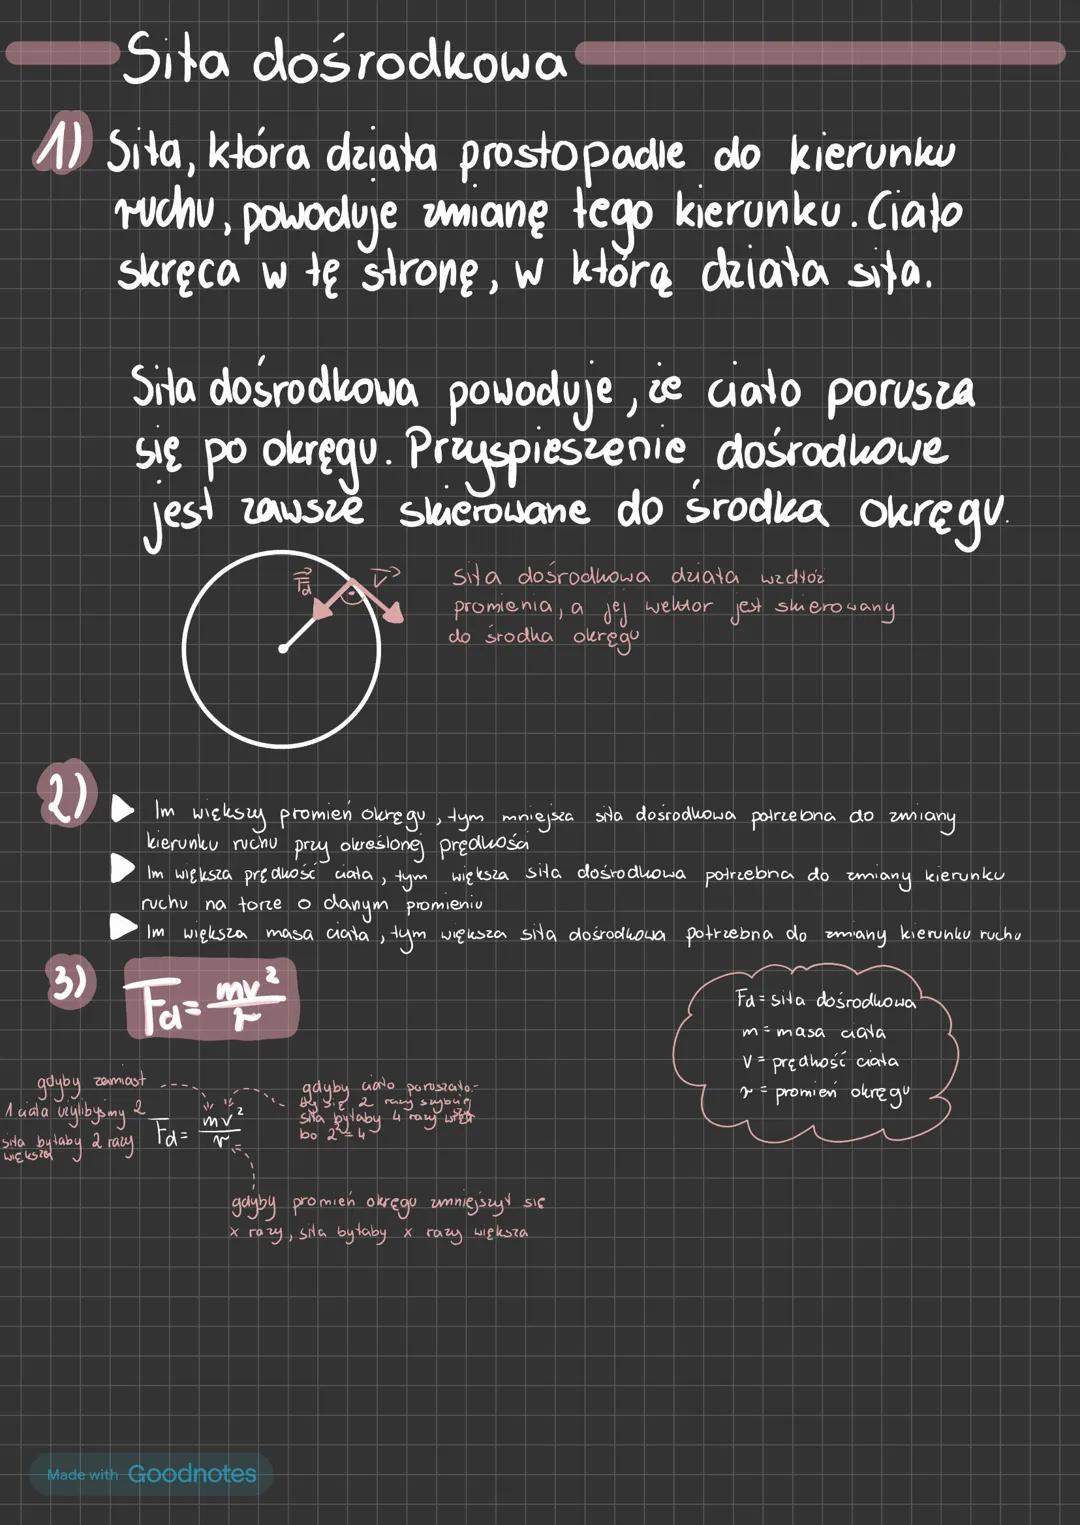 Siła dośrodkowa
1) Siła, która działa prostopadle do kierunku
ruchu, powoduje zmianę tego kierunku. Ciało
skręca w tę stronę, w którą działa siła.
Siła dośrodkowa powoduje, że ciało porusza
się po okręgu. Przyspieszenie dośrodkowe
jest zawsze skierowane do środka okręgu.
Fd V
Siła dośrodkowa działa wzdłóż
promienia, a jej wektor jest skierowany
do środka okręgu
2)
Im większy promień okręgu, tym mniejsza siła dośrodkowa potrzebna do zmiany
kierunku ruchu przy określonej prędkości
Im większa prędkość ciała, tym większa siła dośrodkowa potrzebna do zmiany kierunku
ruchu na torze o danym promieniu
Im większa masa ciała, tym większa siła dośrodkowa potrzebna do zmiany kierunku ruchu
3) Fd = mv²/r
Fd = siła dośrodkowa
m = masa ciała
V = prędkość ciała
r = promień okręgu
gdyby zamiast
1 ciała użylibyśmy 2
siła byłaby 2 razy
większa
Fd = mv²/r
gdyby ciało poruszało-
by się 2 razy szybciej
siła byłaby 4 razy
bo 2² = 4
gdyby promień okręgu zmniejszył się
x razy, siła byłaby x razy większa
Made with Goodnotes